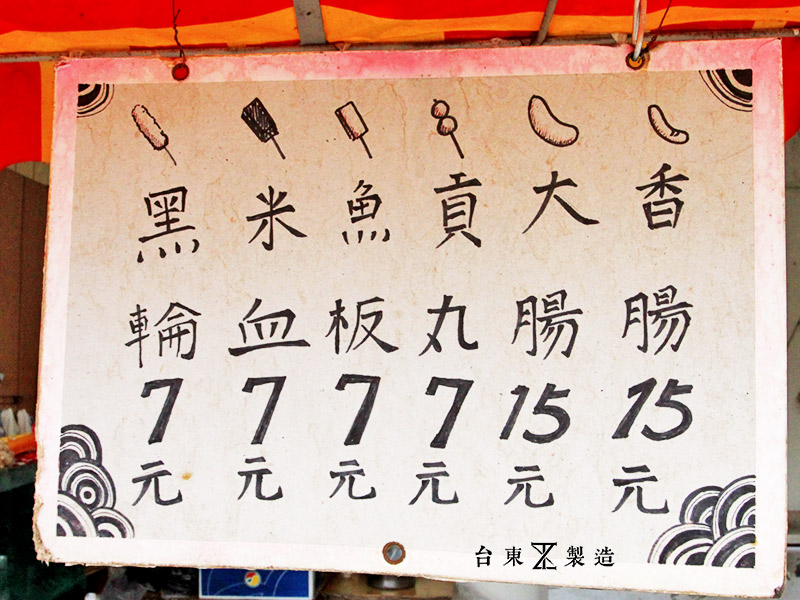 香腸15元
大腸15元
貢丸7元
魚板7元
米血7元
黑輪7元
台東製造